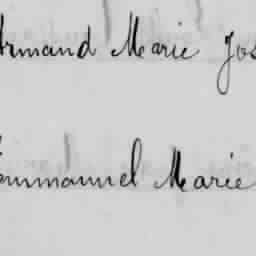 Armand Marie Jos
Emmanuel Marie